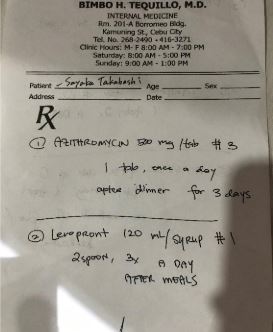 BIMBO H. TEQUILLO, M.D.
INTERNAL MEDICINE
Rm. 201-A Borromeo Bldg.
Kamuning St., Cebu City
Tel. No. 268-2490 - 416-3271
Clinic Hours: M- F 8:00 AM - 7:00 PM
Saturday: 8:00 AM - 5:00 PM
Sunday: 9:00 AM - 1:00 PM
Patient Sayaka Takahashi Age Sex
Address Date
Rx
1 AZITHROMYCIN 500 mg /tab # 3
1 tab, once a day
after dinner for 3 days
2 Levopront 120 mL/syrup # 1
2 spoon, 3x A DAY
AFTER MEALS